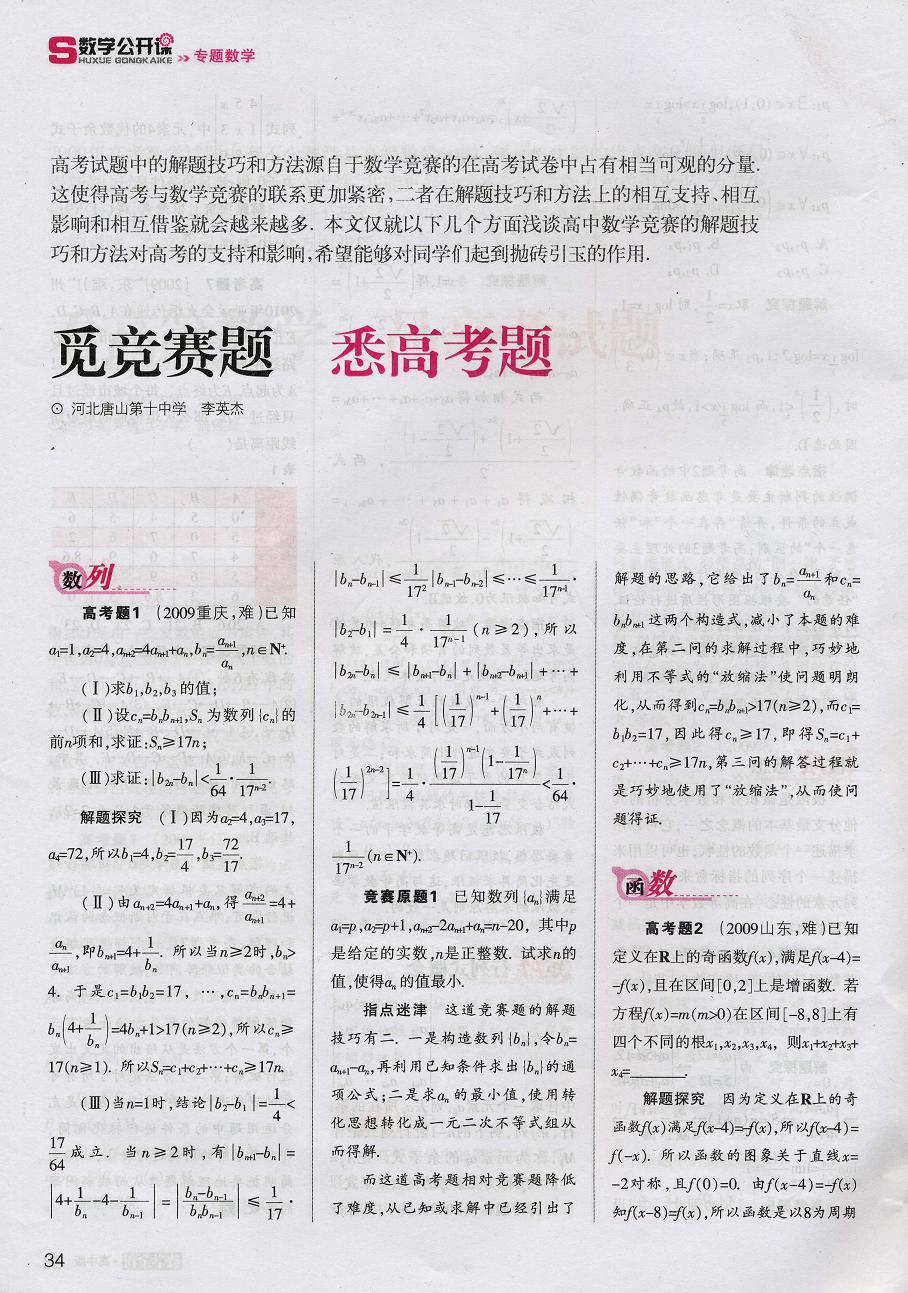 S数学公开课
HUXUE GONGKAIKE
» 专题数学
高考试题中的解题技巧和方法源自于数学竞赛的在高考试卷中占有相当可观的分量.
这使得高考与数学竞赛的联系更加紧密,二者在解题技巧和方法上的相互支持、相互
影响和相互借鉴就会越来越多. 本文仅就以下几个方面浅谈高中数学竞赛的解题技
巧和方法对高考的支持和影响,希望能够对同学们起到抛砖引玉的作用.
觅竞赛题 悉高考题
⊙ 河北唐山第十中学 李英杰
数列
高考题1 (2009重庆,难)已知
a₁=1,a₂=4,aₙ₊₂=4aₙ₊₁+aₙ,bₙ=aₙ₊₁/aₙ,n∈N⁺.
(Ⅰ)求b₁,b₂,b₃的值;
(Ⅱ)设cₙ=bₙbₙ₊₁,Sₙ为数列{cₙ}的
前n项和,求证:Sₙ≥17n;
(Ⅲ)求证:|b₂ₙ-bₙ|<1/64·1/17ⁿ⁻².
解题探究 (Ⅰ)因为a₂=4,a₃=17,
a₄=72,所以b₁=4,b₂=17/4,b₃=72/17.
(Ⅱ)由aₙ₊₂=4aₙ₊₁+aₙ,得aₙ₊₂/aₙ₊₁=4+
aₙ/aₙ₊₁,即bₙ₊₁=4+1/bₙ. 所以当n≥2时,bₙ>
4. 于是c₁=b₁b₂=17, …,cₙ=bₙbₙ₊₁=
bₙ(4+1/bₙ)=4bₙ+1>17(n≥2),所以cₙ≥
17(n≥1). 所以Sₙ=c₁+c₂+…+cₙ≥17n.
(Ⅲ)当n=1时,结论|b₂-b₁|=1/4<
17/64成立. 当n≥2时,有|bₙ₊₁-bₙ|=
|4+1/bₙ-4-1/bₙ₋₁|=|(bₙ-bₙ₋₁)/(bₙbₙ₋₁)|≤1/17·
|bₙ-bₙ₋₁|≤1/17²|bₙ₋₁-bₙ₋₂|≤…≤1/17ⁿ⁻¹·
|b₂-b₁|=1/4·1/17ⁿ⁻¹(n≥2),所以
|b₂ₙ-bₙ|≤|bₙ₊₁-bₙ|+|bₙ₊₂-bₙ₊₁|+…+
|b₂ₙ-b₂ₙ₋₁|≤1/4[(1/17)ⁿ⁻¹+(1/17)ⁿ+…+
(1/17)²ⁿ⁻²]=1/4·((1/17)ⁿ⁻¹(1-1/17ⁿ))/(1-1/17)<1/64·
1/17ⁿ⁻²(n∈N⁺).
竞赛原题1 已知数列{aₙ}满足
a₁=p,a₂=p+1,aₙ₊₂-2aₙ₊₁+aₙ=n-20, 其中p
是给定的实数,n是正整数. 试求n的
值,使得aₙ的值最小.
指点迷津 这道竞赛题的解题
技巧有二. 一是构造数列{bₙ},令bₙ=
aₙ₊₁-aₙ,再利用已知条件求出{bₙ}的通
项公式;二是求aₙ的最小值,使用转
化思想转化成一元二次不等式组从
而得解.
而这道高考题相对竞赛题降低
了难度,从已知或求解中已经引出了
解题的思路,它给出了bₙ=aₙ₊₁/aₙ和cₙ=
bₙbₙ₊₁这两个构造式,减小了本题的难
度,在第二问的求解过程中,巧妙地
利用不等式的“放缩法”使问题明朗
化,从而得到cₙ=bₙbₙ₊₁>17(n≥2),而c₁=
b₁b₂=17,因此得cₙ≥17,即得Sₙ=c₁+
c₂+…+cₙ≥17n,第三问的解答过程就
是巧妙地使用了“放缩法”,从而使问
题得证.
函数
高考题2 (2009山东,难)已知
定义在R上的奇函数f(x),满足f(x-4)=
-f(x),且在区间[0,2]上是增函数. 若
方程f(x)=m(m>0)在区间[-8,8]上有
四个不同的根x₁,x₂,x₃,x₄, 则x₁+x₂+x₃+
x₄=________.
解题探究 因为定义在R上的奇
函数f(x)满足f(x-4)=-f(x),所以f(x-4)=
f(-x). 所以函数的图象关于直线x=
-2对称,且f(0)=0. 由f(x-4)=-f(x)
知f(x-8)=f(x),所以函数是以8为周期
34